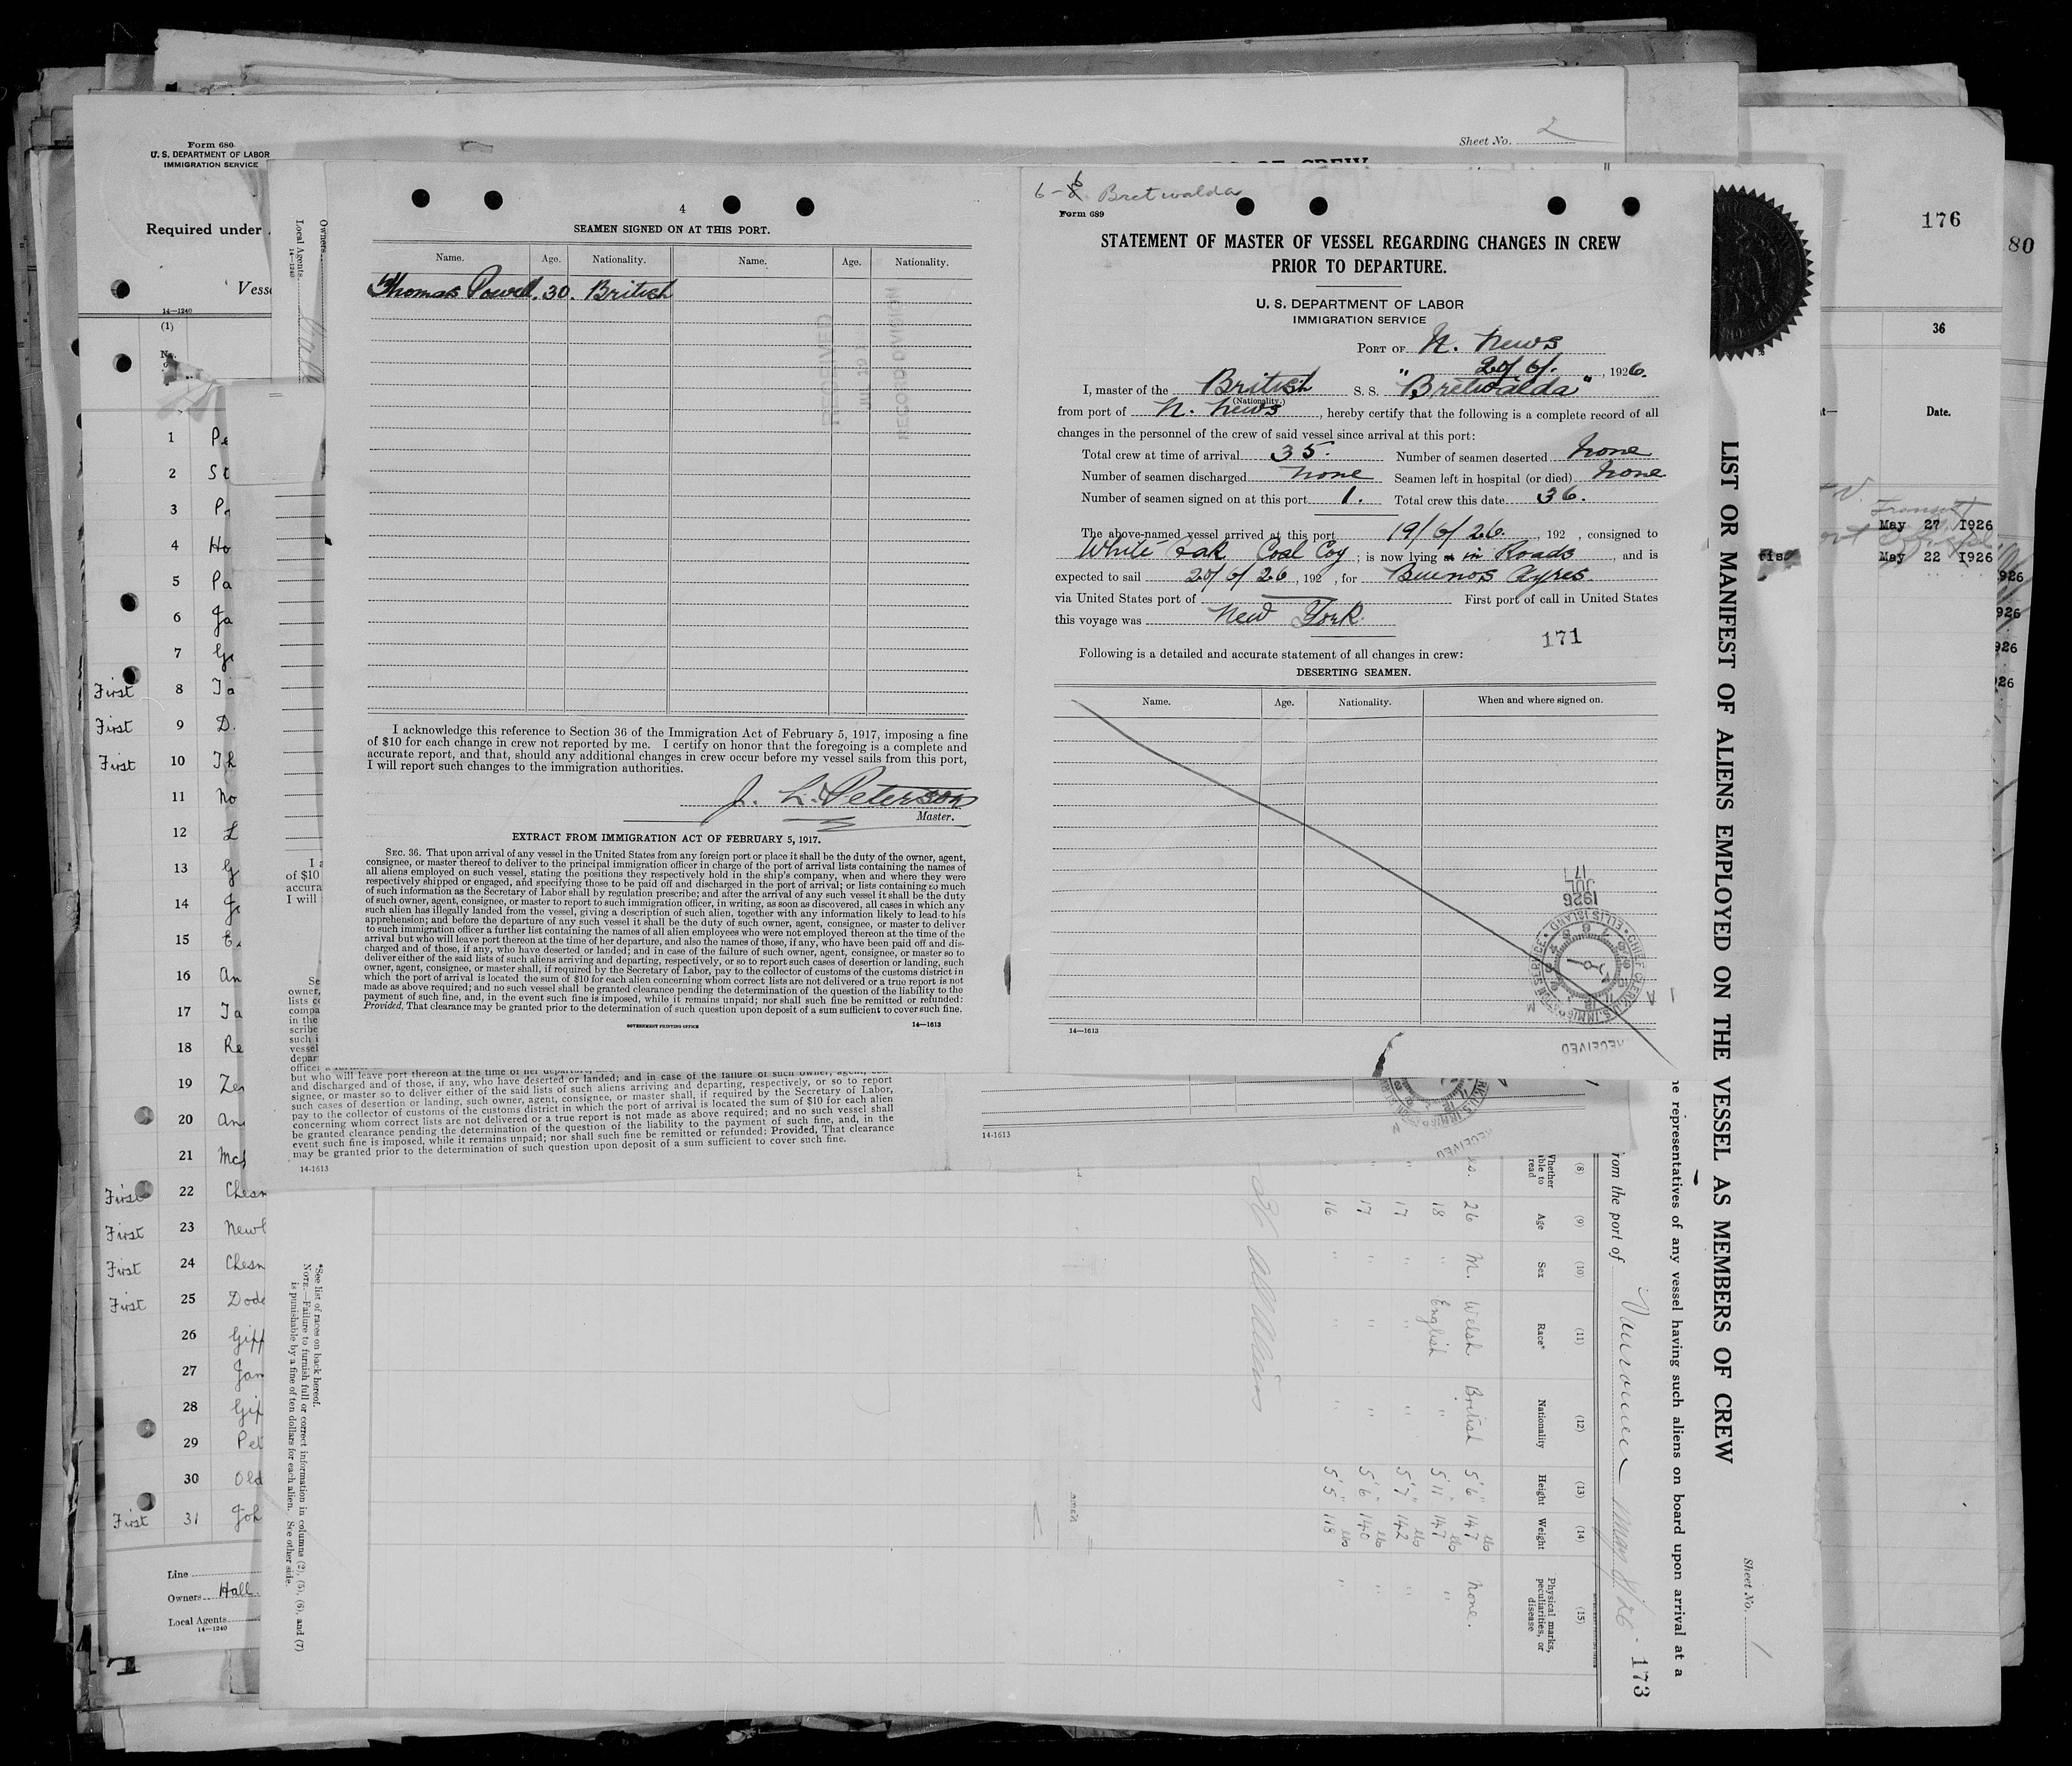 Form 680
U. S. DEPARTMENT OF LABOR
IMMIGRATION SERVICE
Sheet No. 2
Required under
14—1240
(1)
No.
1 Pe
2 St
3 Pr
4 Ho
5 Pa
6 Ja
7 Ge
First 8 Ja
First 9 D.
First 10 Th
11 No
12 L
13 G
14 Je
15 E.
16 An
17 Ja
18 Re
19 Zer
20 An
21 McL
First 22 Chesn
First 23 Newl
First 24 Chesn
First 25 Dodd
26 Giff
27 Jam
28 Gif
29 Pet
30 Old
First 31 Joh
Line
Owners Hall
Local Agents
14—1240
Owners
Local Agents
14—1240
4
SEAMEN SIGNED ON AT THIS PORT.
Name. Age. Nationality. Name. Age. Nationality.
Thomas Powell. 30. British
I acknowledge this reference to Section 36 of the Immigration Act of February 5, 1917, imposing a fine
of $10 for each change in crew not reported by me. I certify on honor that the foregoing is a complete and
accurate report, and that, should any additional changes in crew occur before my vessel sails from this port,
I will report such changes to the immigration authorities.
J. L. Peterson
Master.
EXTRACT FROM IMMIGRATION ACT OF FEBRUARY 5, 1917.
SEC. 36. That upon arrival of any vessel in the United States from any foreign port or place it shall be the duty of the owner, agent,
consignee, or master thereof to deliver to the principal immigration officer in charge of the port of arrival lists containing the names of
all aliens employed on such vessel, stating the positions they respectively hold in the ship's company, when and where they were
respectively shipped or engaged, and specifying those to be paid off and discharged in the port of arrival; or lists containing so much
of such information as the Secretary of Labor shall by regulation prescribe; and after the arrival of any such vessel it shall be the duty
of such owner, agent, consignee, or master to report to such immigration officer, in writing, as soon as discovered, all cases in which any
such alien has illegally landed from the vessel, giving a description of such alien, together with any information likely to lead to his
apprehension; and before the departure of any such vessel it shall be the duty of such owner, agent, consignee, or master to deliver
to such immigration officer a further list containing the names of all alien employees who were not employed thereon at the time of the
arrival but who will leave port thereon at the time of her departure, and also the names of those, if any, who have been paid off and dis-
charged and of those, if any, who have deserted or landed; and in case of the failure of such owner, agent, consignee, or master so to
deliver either of the said lists of such aliens arriving and departing, respectively, or so to report such cases of desertion or landing, such
owner, agent, consignee, or master shall, if required by the Secretary of Labor, pay to the collector of customs of the customs district in
which the port of arrival is located the sum of $10 for each alien concerning whom correct lists are not delivered or a true report is not
made as above required; and no such vessel shall be granted clearance pending the determination of the question of the liability to the
payment of such fine, and, in the event such fine is imposed, while it remains unpaid; nor shall such fine be remitted or refunded:
Provided, That clearance may be granted prior to the determination of such question upon deposit of a sum sufficient to cover such fine.
GOVERNMENT PRINTING OFFICE 14—1613
6-6 Bretwalda
Form 689
STATEMENT OF MASTER OF VESSEL REGARDING CHANGES IN CREW
PRIOR TO DEPARTURE.
U. S. DEPARTMENT OF LABOR
IMMIGRATION SERVICE
PORT OF N. News
20/6/. , 1926.
I, master of the British S. S. "Bretwalda"
(Nationality.)
from port of N. News, hereby certify that the following is a complete record of all
changes in the personnel of the crew of said vessel since arrival at this port:
Total crew at time of arrival 35. Number of seamen deserted None
Number of seamen discharged None Seamen left in hospital (or died) None
Number of seamen signed on at this port 1. Total crew this date 36.
The above-named vessel arrived at this port 19/6/26. , 192 , consigned to
White Oak Coal Coy ; is now lying at in Roads , and is
expected to sail 20/6/26 , 192 , for Buenos Ayres
via United States port of First port of call in United States
this voyage was New York.
171
Following is a detailed and accurate statement of all changes in crew:
DESERTING SEAMEN.
Name. Age. Nationality. When and where signed on.
1926
JUL
17
RECEIVED
14—1613
but who will leave port thereon at the time of her departure,
and discharged and of those, if any, who have deserted or landed; and in case of the failure of such owner, agent, con-
signee, or master so to deliver either of the said lists of such aliens arriving and departing, respectively, or so to report
such cases of desertion or landing, such owner, agent, consignee, or master, shall, if required by the Secretary of Labor,
pay to the collector of customs of the customs district in which the port of arrival is located the sum of $10 for each alien
concerning whom correct lists are not delivered or a true report is not made as above required; and no such vessel shall
be granted clearance pending the determination of the question of the liability to the payment of such fine, and, in the
event such fine is imposed, while it remains unpaid; nor shall such fine be remitted or refunded: Provided, That clearance
may be granted prior to the determination of such question upon deposit of a sum sufficient to cover such fine.
14-1613
14-1613
LIST OR MANIFEST OF ALIENS EMPLOYED ON THE VESSEL AS MEMBERS OF CREW
Sheet No. 1
representatives of any vessel having such aliens on board upon arrival at a
from the port of Vancouver May 8/26 - 173
(8) (9) (10) (11) (12) (13) (14) (15)
Whether able to read Age Sex Race* Nationality Height Weight Physical marks, peculiarities, or disease
26 M. Welsh British 5'6" 147 lbs None.
18 " English " 5'11" 147 lbs "
17 " " " 5'7" 142 lbs "
17 " " " 5'6" 140 lbs "
16 " " " 5'5" 118 lbs "
36 all Aliens
*See list of races on back hereof.
NOTE.—Failure to furnish full or correct information in columns (2), (5), (6), and (7)
is punishable by a fine of ten dollars for each alien. See other side.
176
80
36
Date.
Transit
May 27 1926
May 22 1926